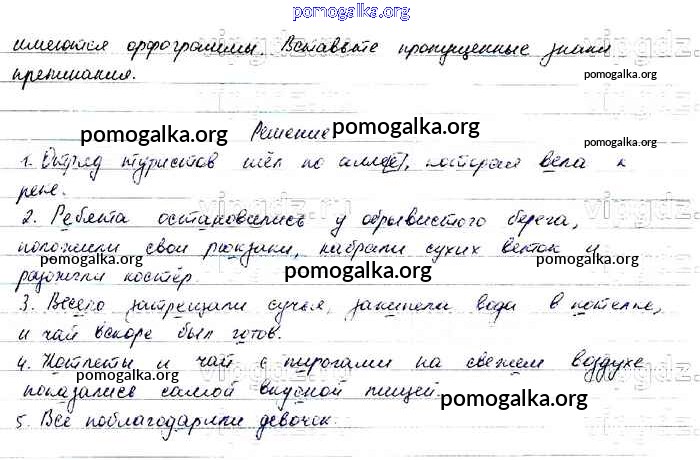 pomogalka.org
имеются орфограммы. Вставьте пропущенные знаки
препинания.
pomogalka.org
pomogalka.org
Решение
pomogalka.org
1. Отряд туристов шёл по аллее, которая вела к
реке.
2. Ребята остановились у обрывистого берега,
положили свои рюкзаки, набрали сухих веток и
разожгли костёр.
pomogalka.org
pomogalka.org
3. Весело затрещали сучья, закипела вода в котелке,
и чай вскоре был готов.
4. Котлеты и чай с пирогами на свежем воздухе
pomogalka.org
показались самой вкусной пищей.
pomogalka.org
5. Все поблагодарили девочек.